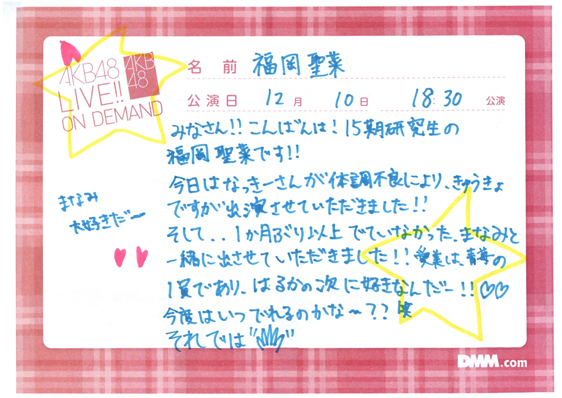 AKB48
LIVE!!
ON DEMAND
AKB
48
名前 福岡聖菜
公演日 12月 10日 18:30 公演
みなさん!!こんばんは!15期研究生の
福岡聖菜です!!
今日はなっきーさんが体調不良により、きゅうきょ
ですが出演させていただきました!!
そして..1か月ぶり以上でていなかった、まなみと
一緒に出させていただきました!!愛菜は青春の
1頁であり、はるかの次に好きなんだー!!♡♡
今度はいつでれるのかな〜??笑
それでは"
まなみ
大好きだ〜
DMM.com